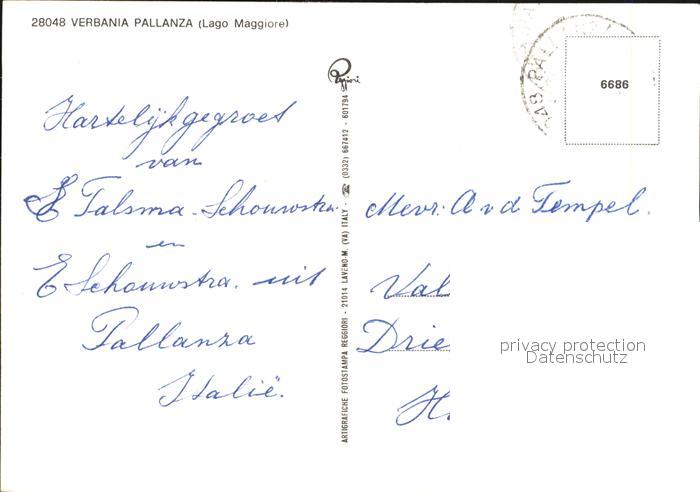 28048 VERBANIA PALLANZA (Lago Maggiore)
Hartelijk gegroet
van
Talsma-Schouwstra
en
E Schouwstra. uit
Pallanza
Italië.
Reggiori
ARTIGRAFICHE FOTOSTAMPA REGGIORI - 21014 LAVENO-M. (VA) ITALY - ☎ (0332) 667412 - 601794
6686
Mevr. A v d Tempel.
Val
Drie
H.
privacy protection
Datenschutz